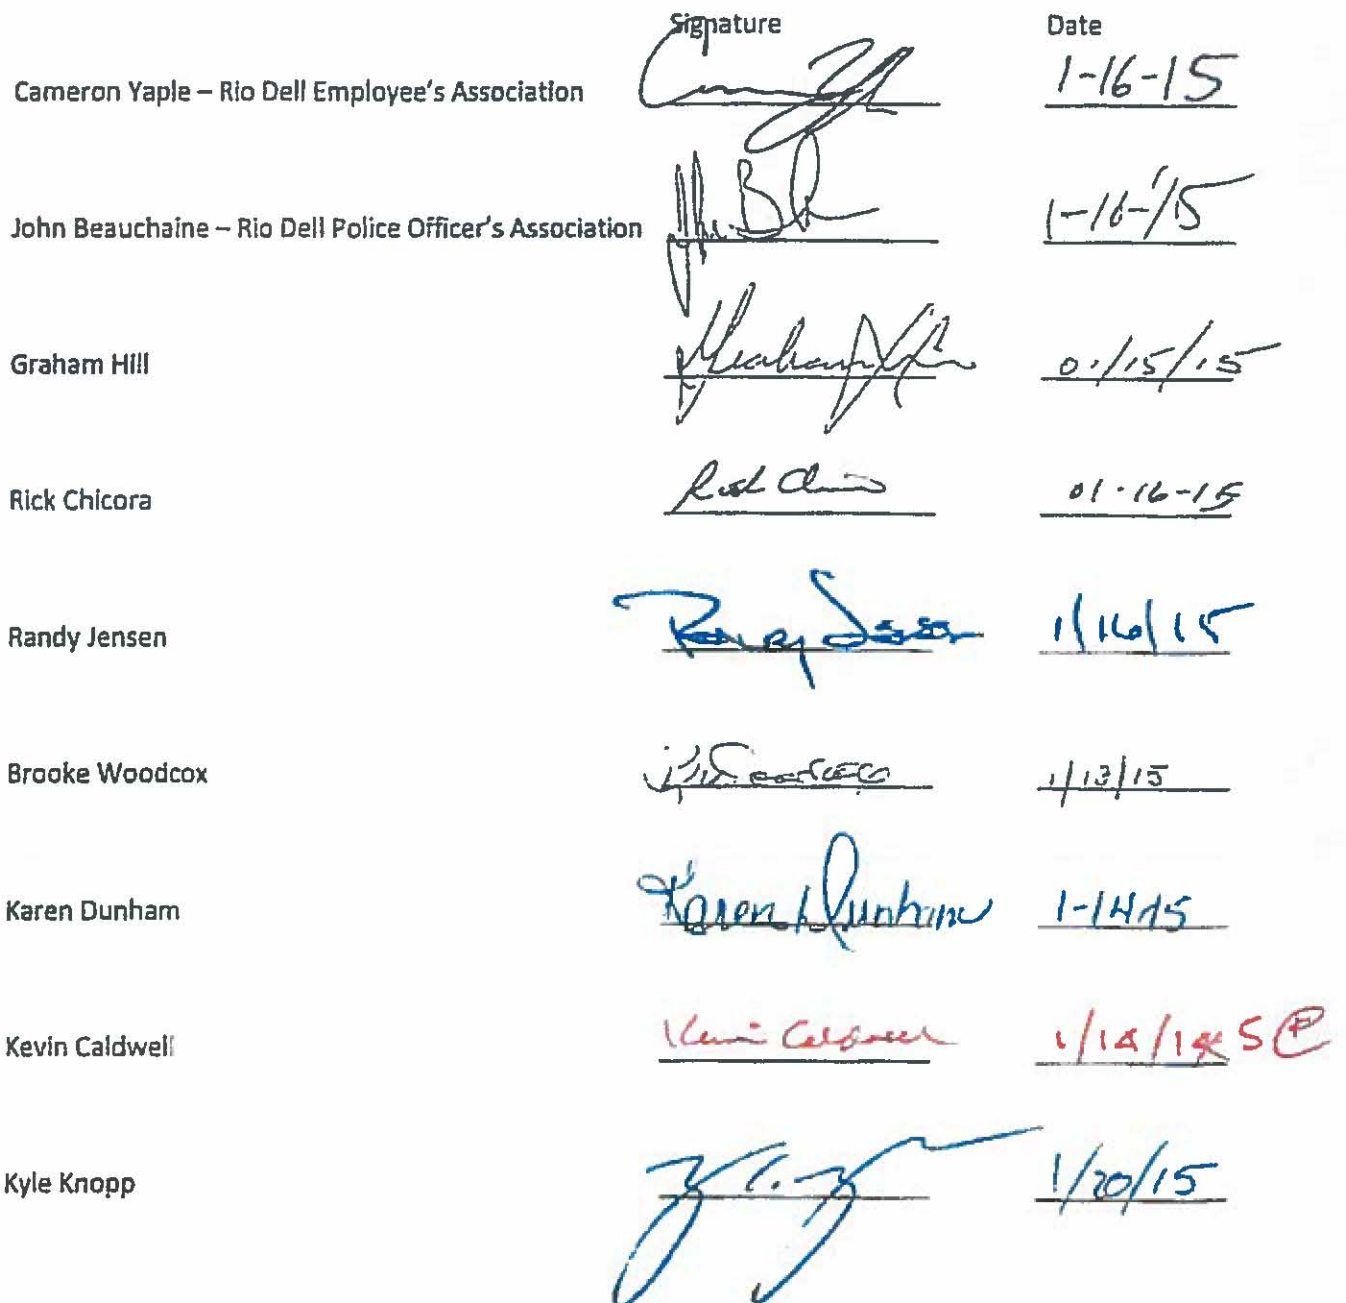 Signature Date
Cameron Yaple – Rio Dell Employee's Association 1-16-15
John Beauchaine – Rio Dell Police Officer's Association 1-16-15
Graham Hill Graham Hill 01/15/15
Rick Chicora Rick Chicora 01-16-15
Randy Jensen Randy Jensen 1/16/15
Brooke Woodcox B Woodcox 1/13/15
Karen Dunham Karen Dunham 1-14-15
Kevin Caldwell Kevin Caldwell 1/14/15
Kyle Knopp 1/20/15